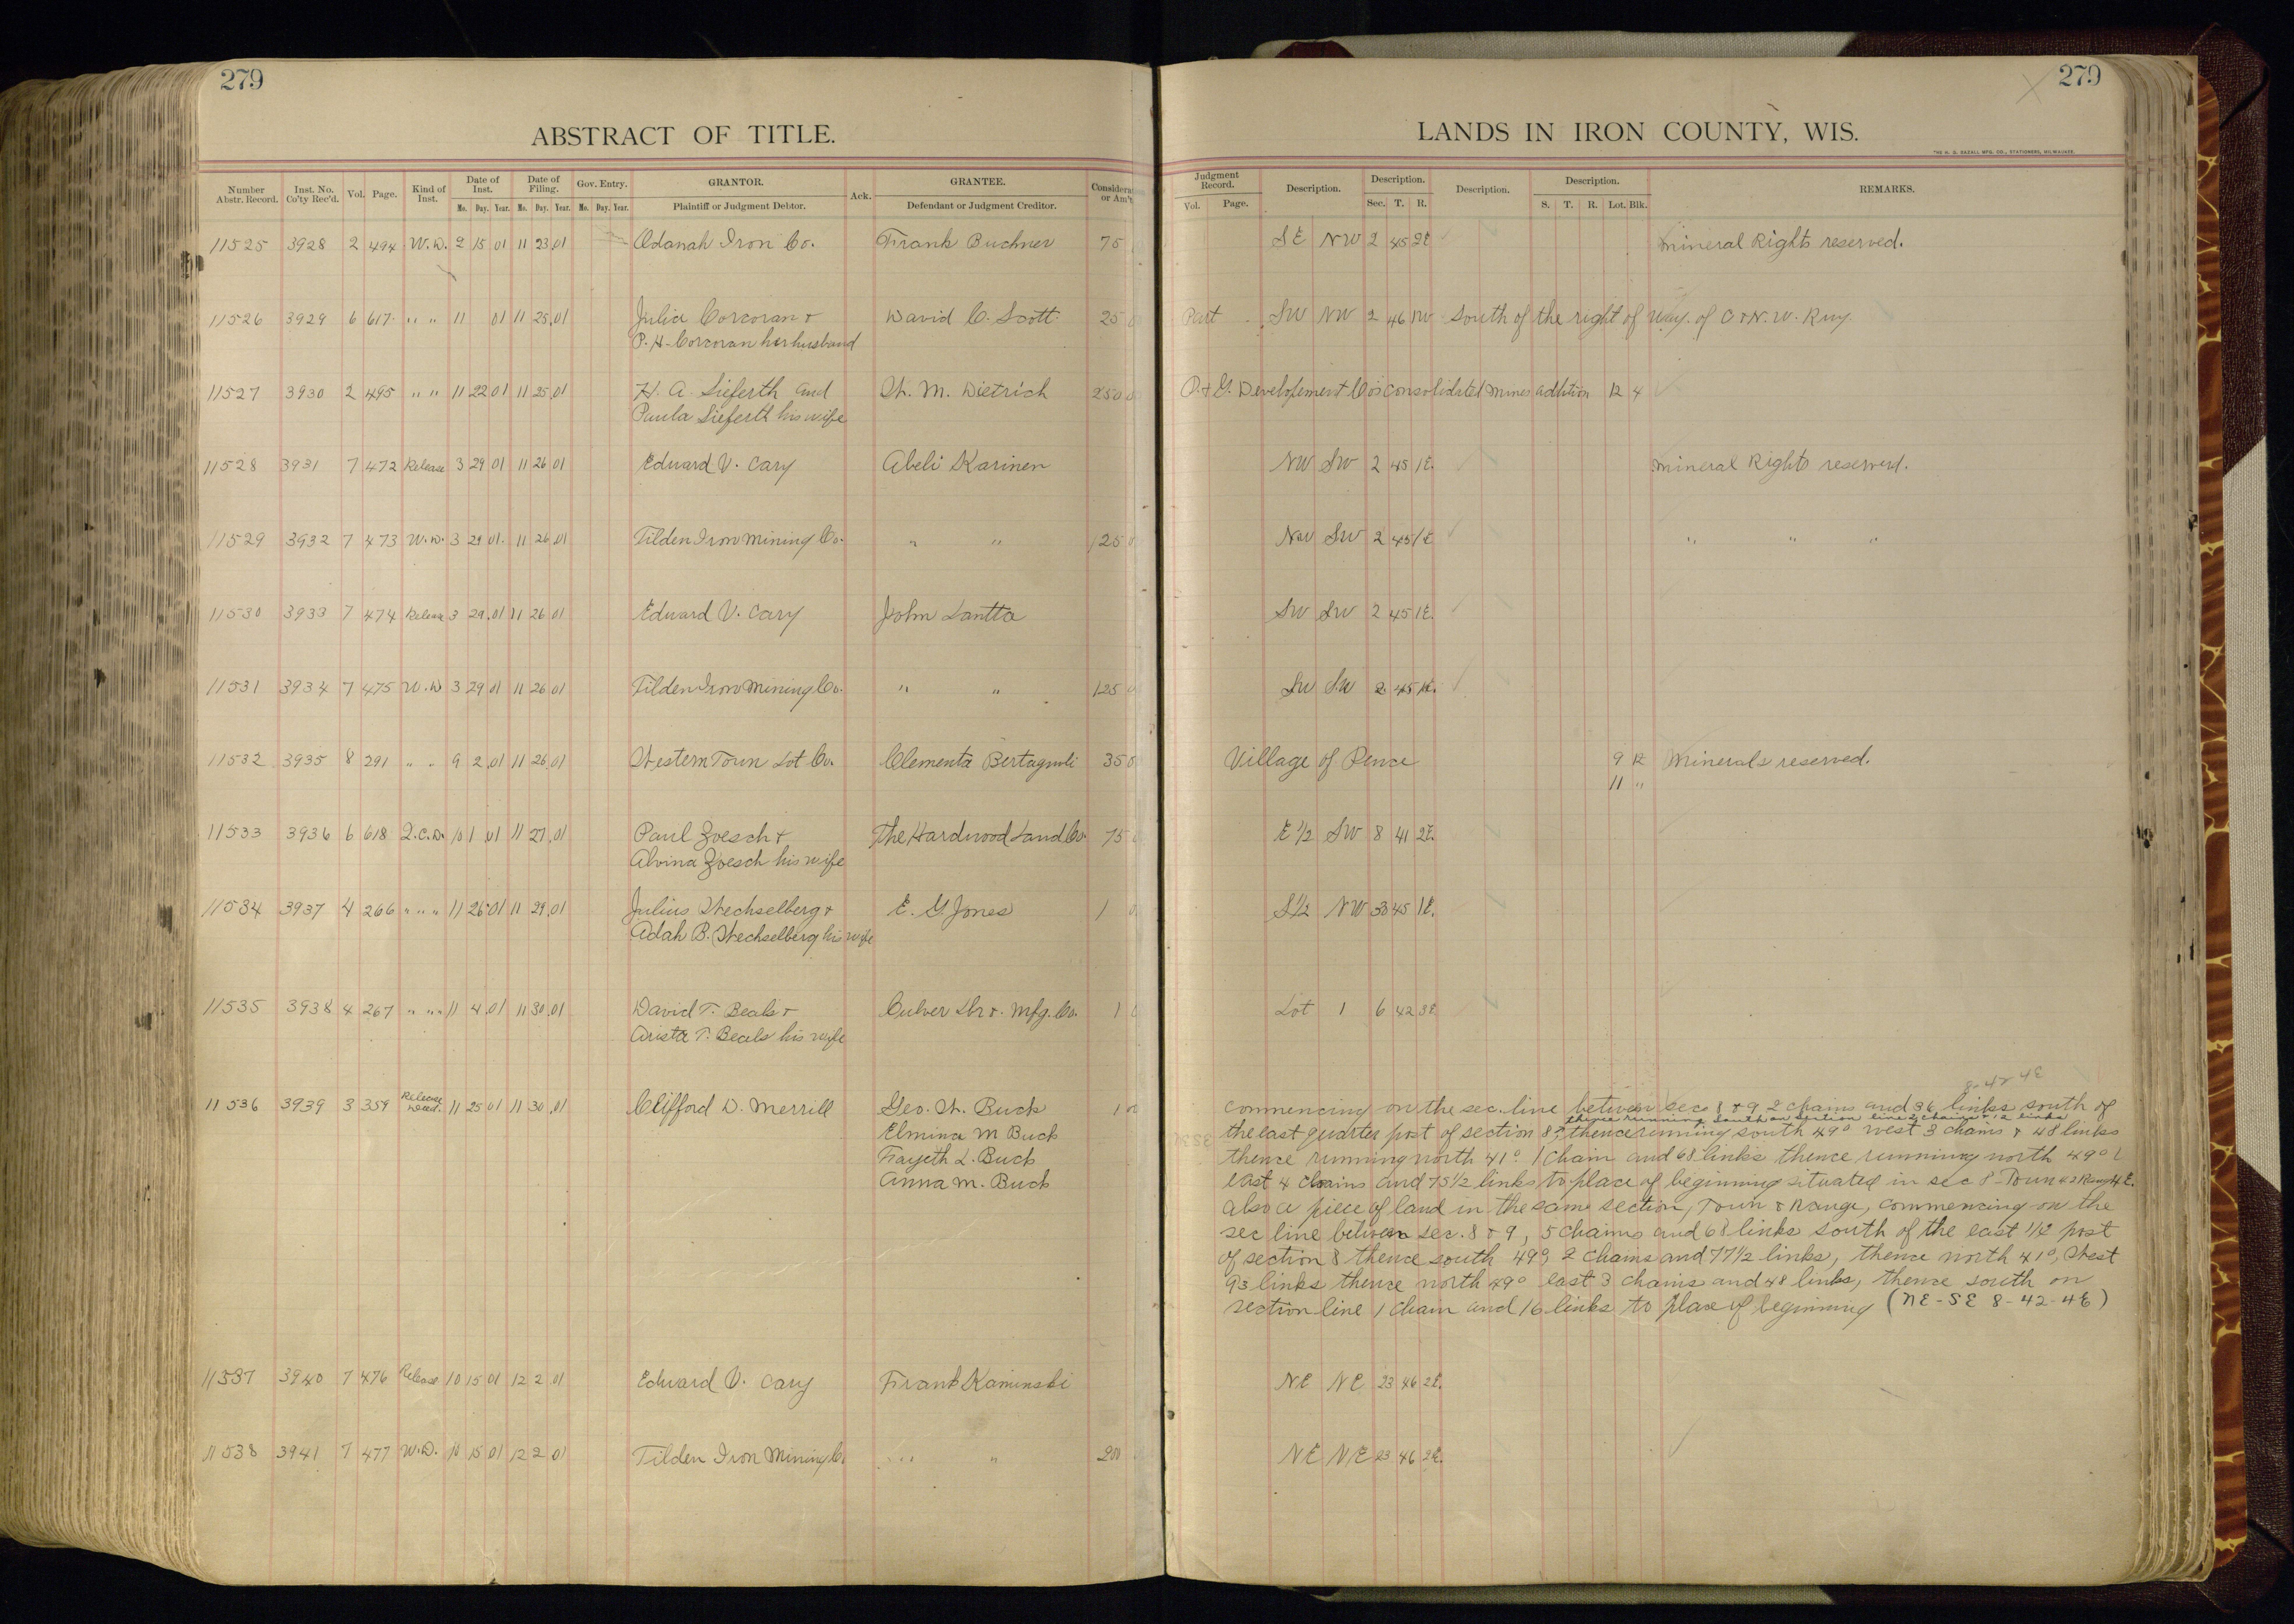 279
279
ABSTRACT OF TITLE.
LANDS IN IRON COUNTY, WIS.
THE H. G. RAZALL MFG. CO., STATIONERS, MILWAUKEE.
Number Abstr. Record. Inst. No. Co'ty Rec'd. Vol. Page. Kind of Inst. Date of Inst. Mo. Day. Year. Date of Filing. Mo. Day. Year. Gov. Entry. Mo. Day. Year. GRANTOR. Plaintiff or Judgment Debtor. Ack. GRANTEE. Defendant or Judgment Creditor. Considerat or Am't
Judgment Record. Vol. Page. Description. Description. Sec. T. R. Description. Description. S. T. R. Lot. Blk. REMARKS.
11525 3928 2 494 W.D. 2 15 01 11 23 01 Odanah Iron Co. Frank Buchner 75 SE NW 2 45 2E Mineral Rights reserved.
11526 3929 6 617 " " 11 01 11 25 01 Julia Corcoran + David C. Scott 25 Part SW NW 2 46 1W South of the right of way of C + N. W. Rwy.
P. H. Corcoran her husband
11527 3930 2 495 " " 11 22 01 11 25 01 H. A. Sieferth and W. M. Dietrich 250 P. + G. Developement Co's Consolidated Mines addition 12 4
Paula Sieferth his wife
11528 3931 7 472 Release 3 29 01 11 26 01 Edward V. Cary Abeli Karinen NW SW 2 45 1E. Mineral Rights reserved.
11529 3932 7 473 W.D. 3 29 01 11 26 01 Tilden Iron Mining Co. " " 125 NW SW 2 45 1E " " "
11530 3933 7 474 Release 3 29 01 11 26 01 Edward V. Cary John Lantta SW SW 2 45 1E.
11531 3934 7 475 W.D 3 29 01 11 26 01 Tilden Iron Mining Co. " " 125 SW SW 2 45 1E.
11532 3935 8 291 " " 9 2 01 11 26 01 Western Town Lot Co. Clementa Bertagnoli 35 Village of Pence 9 12 Minerals reserved.
11 "
11533 3936 6 618 Q.C.D. 10 1 01 11 27 01 Paul Zoesch + The Hardwood Land Co. 75 E 1/2 SW 8 41 2E.
Alvina Zoesch his wife
11534 3937 4 266 " " " 11 26 01 11 29 01 Julius Wechselberg + E. G. Jones 1 S 1/2 NW 33 45 1E.
Adah B. Wechselberg his wife
11535 3938 4 267 " " " 11 4 01 11 30 01 David T. Beals + Culver Lbr + Mfg. Co. 1 Lot 1 6 42 3E
Arista T. Beals his wife
8-42 4E
11536 3939 3 359 Release Deed. 11 25 01 11 30 01 Clifford D. Merrill Geo. W. Buck 1 00 Commencing on the sec. line between sec 8 + 9 2 chains and 36 links south of
Elmina M Buck
Fayeth L. Buck
Anna M. Buck
thence running South on section line 2 chains + 12 links
the east quarter post of section 8, thence running south 49° west 3 chains + 48 links
thence running north 41° 1 chain and 68 links thence running north 49°
east 4 chains and 75 1/2 links to place of beginning situated in sec 8 Town 42 Range 4 E.
also a piece of land in the same section, Town + Range, commencing on the
sec line between sec. 8 + 9, 5 chains and 68 links south of the east 1/4 post
of section 8 thence south 49°, 2 chains and 77 1/2 links, thence north 41°, West
93 links thence north 49° east 3 chains and 48 links, thence south on
section line 1 chain and 16 links to place of beginning (NE-SE 8-42-4E)
11537 3940 7 476 Release 10 15 01 12 2 01 Edward V. Cary Frank Kaminski NE NE 23 46 2E.
11538 3941 7 477 W.D. 10 15 01 12 2 01 Tilden Iron Mining Co. " " 200 NE NE 23 46 2E.